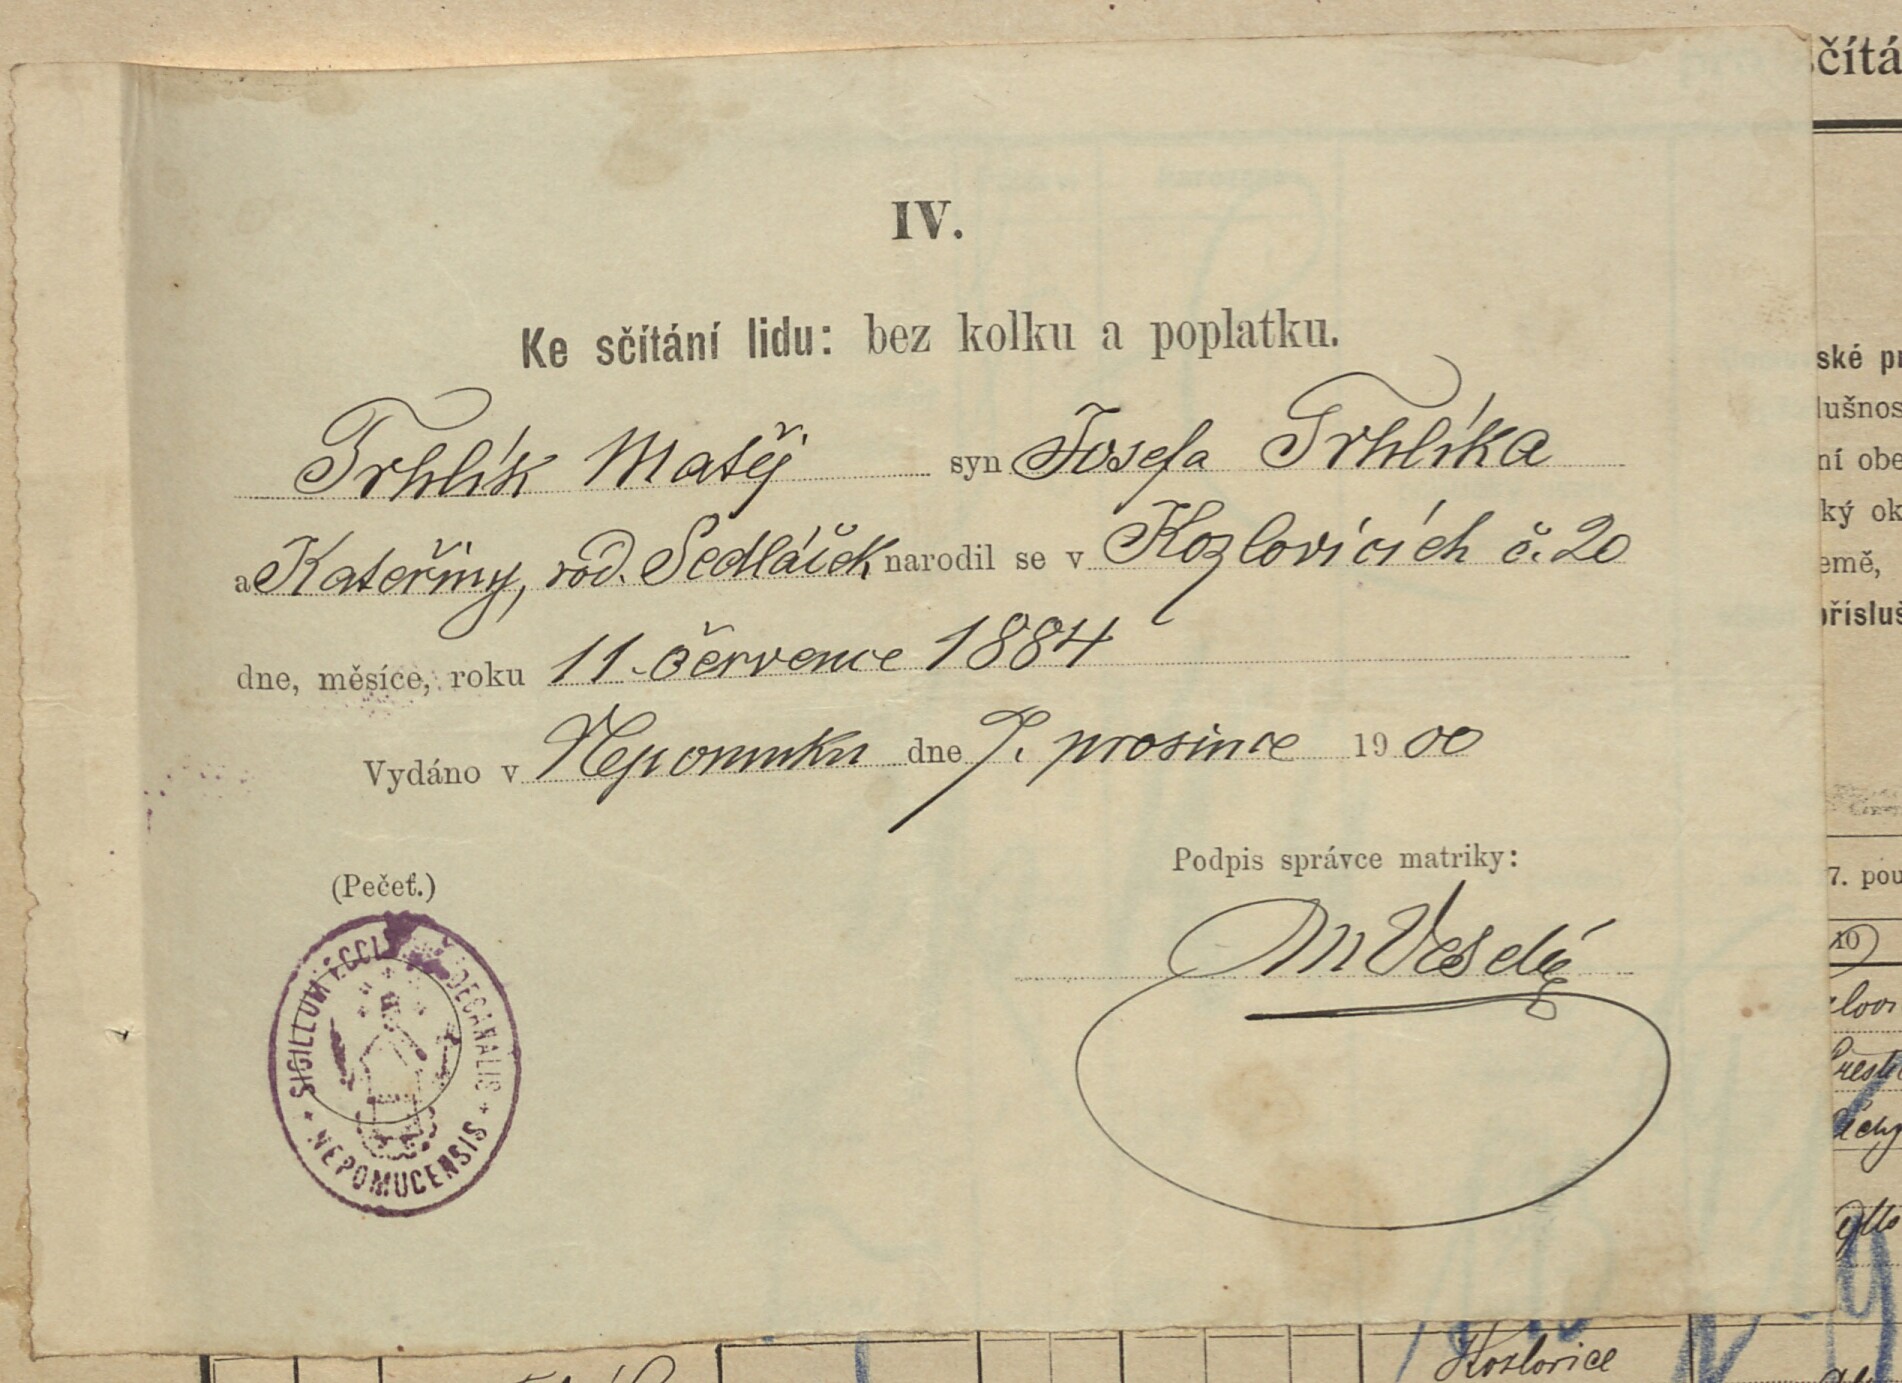 IV.
Ke sčítání lidu: bez kolku a poplatku.
Trhlík Matěj syn Josefa Trhlíka
a Kateřiny, rod. Sedláček narodil se v Kozlovicích č. 20
dne, měsíce, roku 11. července 1884
Vydáno v Nepomuku dne 9. prosince 1900
(Pečeť.)
Podpis správce matriky:
M Veselý
SIGILLUM ECCL DECANALIS
NEPOMUCENSIS
sčítá
ské pr
lušnos
ní obe
ký ok
emě,
přísluš
7. pou
10
Kozlovice